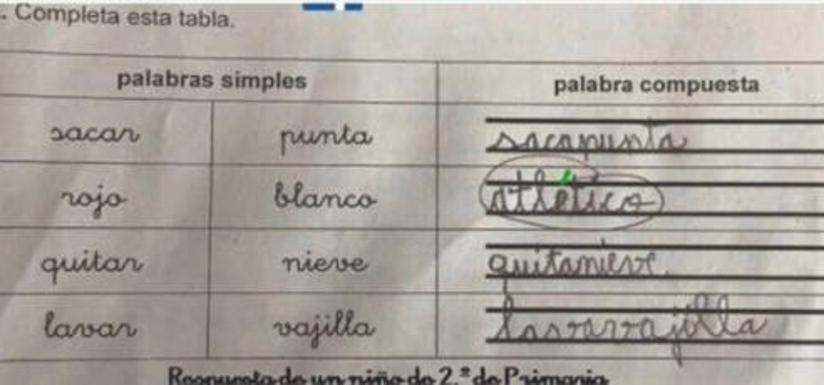 . Completa esta tabla.
palabras simples palabra compuesta
sacar punta sacapunta
rojo blanco atlético
quitar nieve quitanieve
lavar vajilla lavavajilla
Respuesta de un niño de 2.º de Primaria